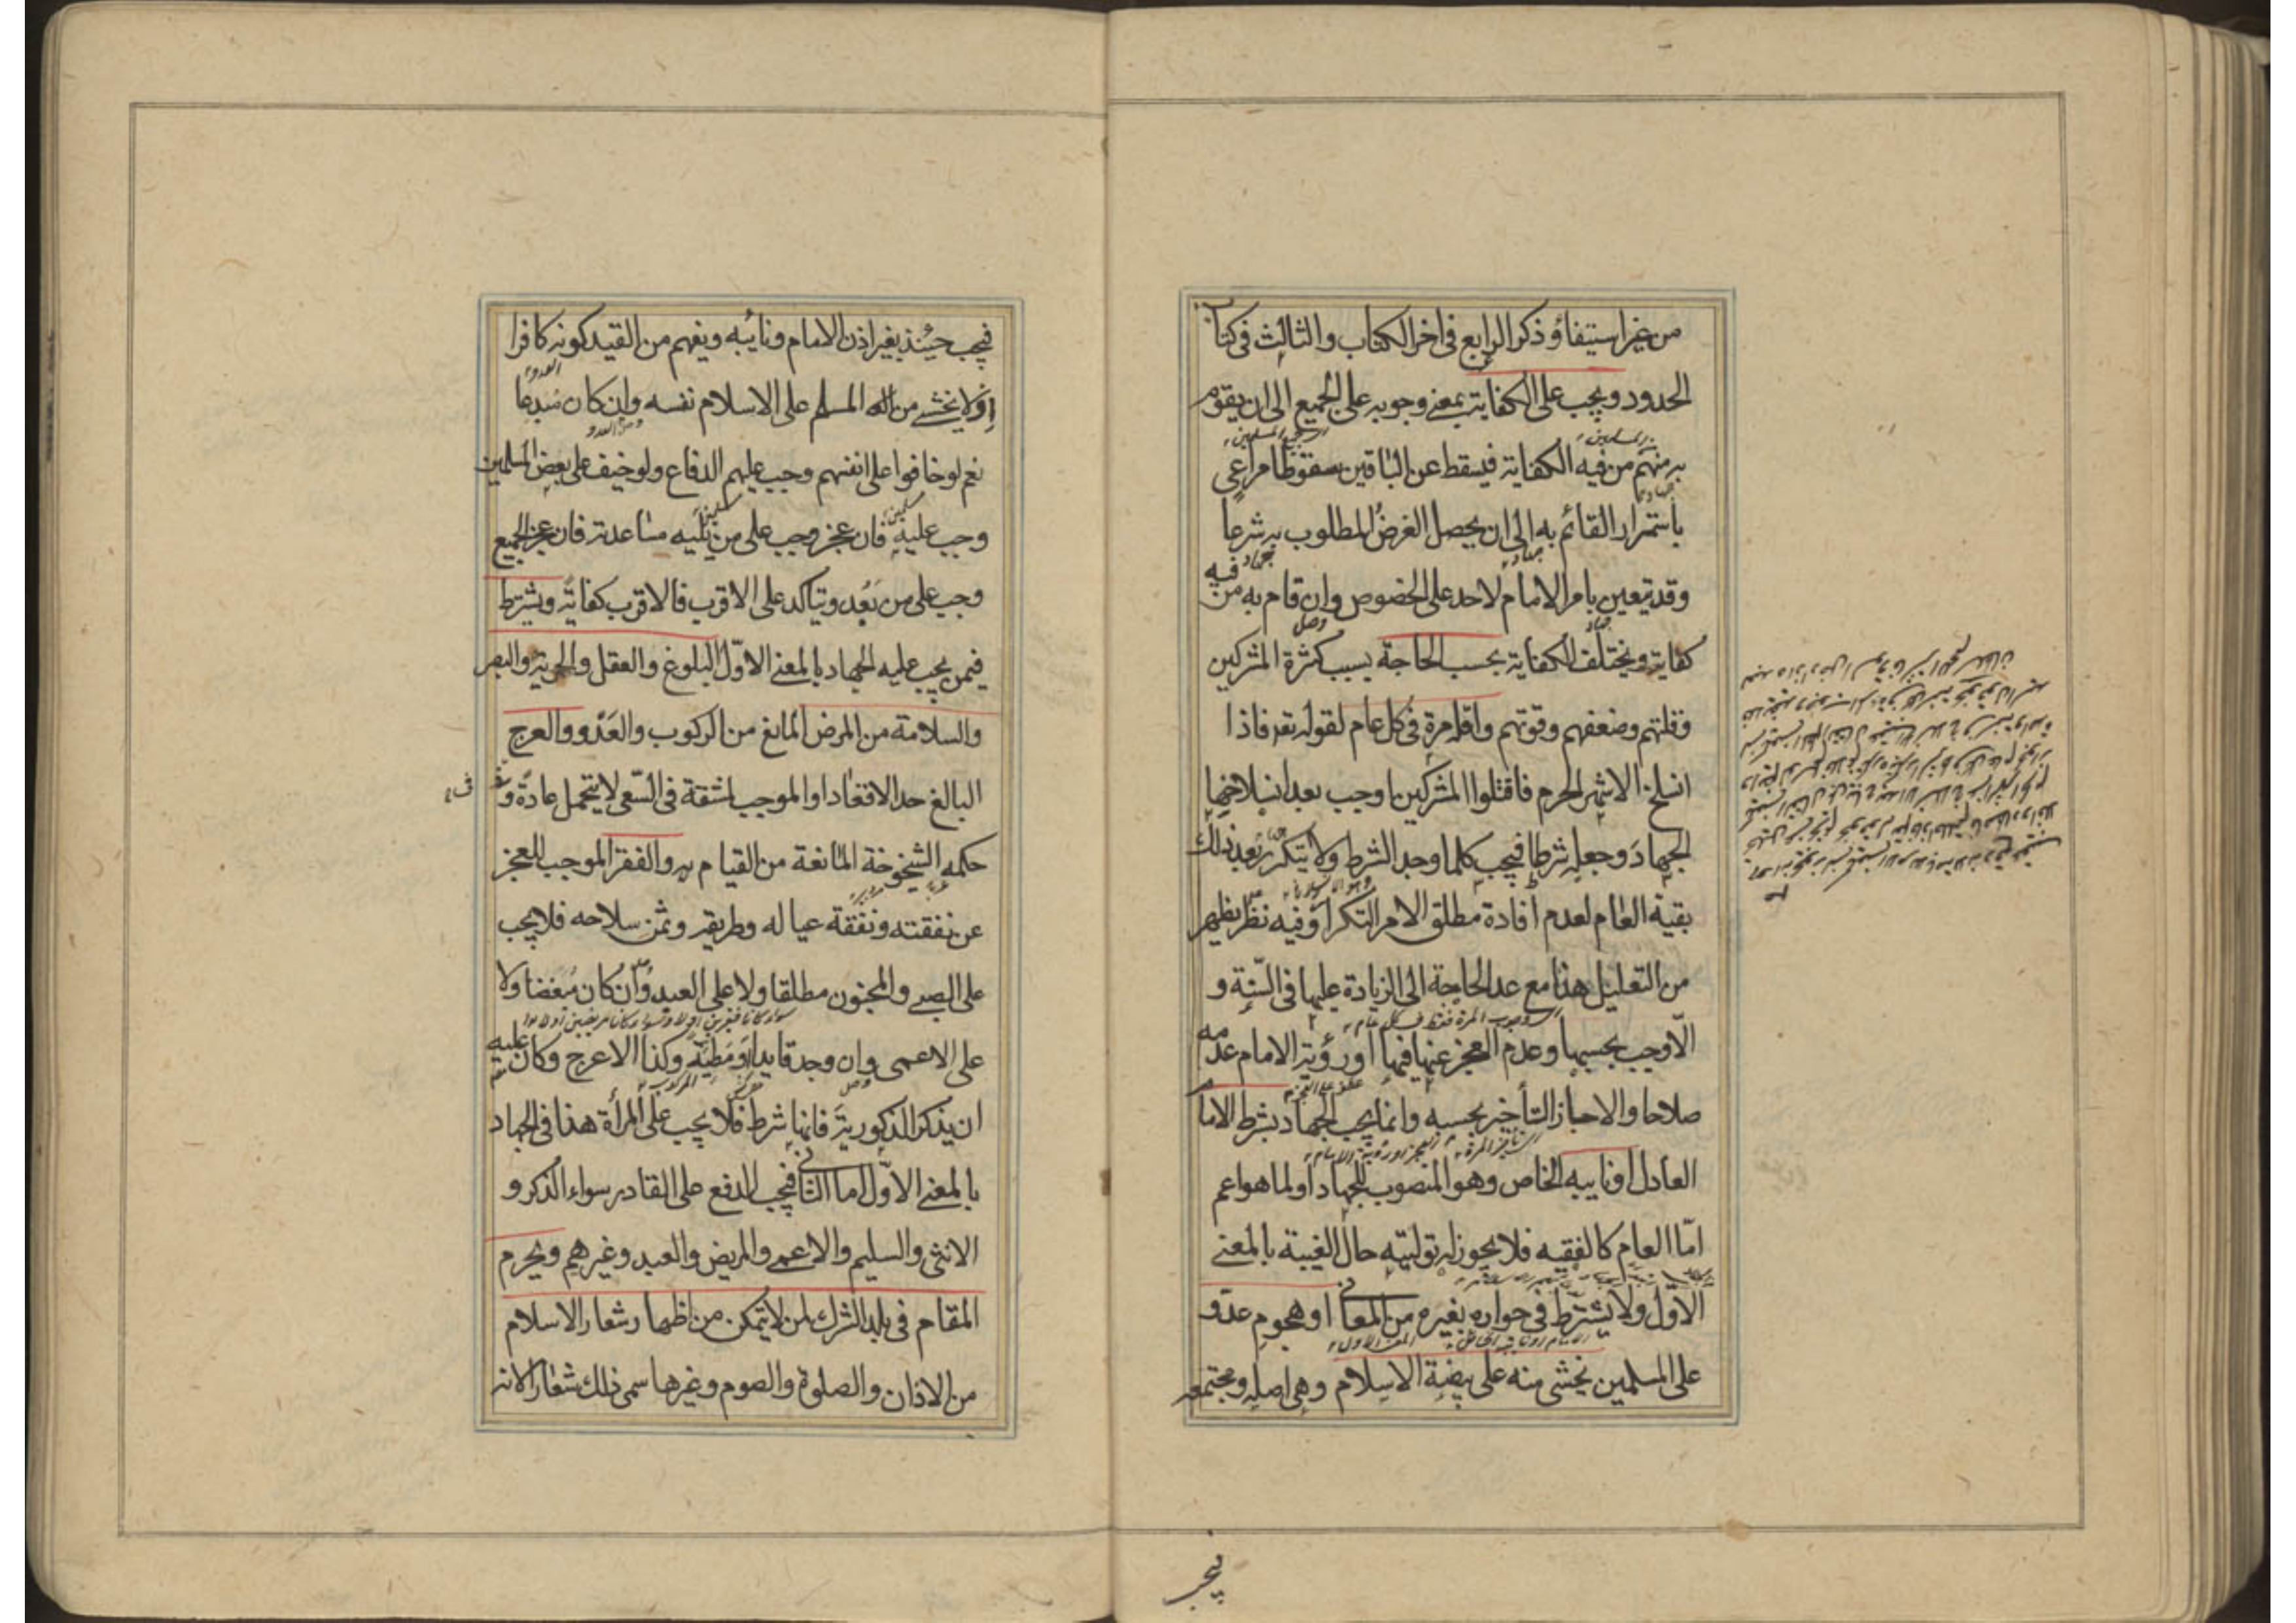 من غير استيفاؤ ذكر الرابع فى اخر الكتاب والثالث فى كتاب
الحدود ويجب على الكفاية بمعنى وجوبه على الجميع الى ان يقوم
به منهم من فيه الكفاية فيسقط عن الباقين سقوطا مراعى
باستمرار القائم به الى ان يحصل الغرض المطلوب به شرعا
وقد يتعين بامر الامام لاحد على الخصوص وان قام به من فيه
كفاية ويختلف الكفاية بحسب الحاجة بسبب كثرة المشركين
وقلتهم وضعفهم وقوتهم واقله مرة فى كل عام لقوله تعه فاذا
انسلخ الاشهر الحرم فاقتلوا المشركين اوجب بعد انسلاخها
الجهاد وجعله شرطا فيجب كلما وجد الشرط ولا يتكرر بعد ذلك
بقية العام لعدم افادة مطلق الامر التكرار وفيه نظر يظهر
من التعليل هذا مع عد الحاجة الى الزيادة عليها فى السنة و
الا وجب بحسبها وعدم العجز عنها فيها او رؤية الامام عدمه
صلاحا والا جاز التأخير بحسبه وانما يجب الجهاد بشرط الاما
العادل او نايبه الخاص وهو المنصوب للجهاد او لما هو اعم
امّا العام كالفقيه فلا يجوز له توليته حال الغيبة بالمعنى
الاوّل ولا يشترط فى جوازه بغيره من المعانى او هجوم عدو
على المسلمين يخشى منه على بيضة الاسلام وهى اصله ومجتمعه
فيجب
فيجب حينئذ بغير اذن الامام ونايبه ويفهم من القيد كونه كافرا
اذ لا يخشى من المسلم على الاسلام نفسه وان كان مبدعا
نعم لو خافوا على انفسهم وجب عليهم الدفاع ولو خيف على بعض المسلمين
وجب عليه فان عجز وجب على من يليه مساعدته فان عجز الجميع
وجب على من بعد ويتاكد على الاقرب فالاقرب كفاية ويشترط
فيمن يجب عليه الجهاد بالمعنى الاوّل البلوغ والعقل والحرية والبصر
والسلامة من المرض المانع من الركوب والعَدْو والعرج
البالغ حد الاقعاد او الموجب لمشقة فى السّعى لا يتحمل عادة و فى
حكمه الشيخوخة المانعة من القيام به والفقر الموجب للعجز
عن نفقته ونفقة عياله وطريقه وثمن سلاحه فلا يجب
على الصبى والمجنون مطلقا ولا على العبد وان كان مبعضا ولا
على الاعمى وان وجد قايدا ومطيّة وكذا الاعرج وكان عليه
ان يذكر الذكورية فانها شرط فلا يجب على المرأة هذا فى الجهاد
بالمعنى الاوّل اما الثانى فيجب الدفع على القادر سواء الذكر و
الانثى والسليم والاعمى والمريض والعبد وغيرهم ويحرم
المقام فى بلد الشرك لمن لا يتمكن من اظهار شعار الاسلام
من الاذان والصلوة والصوم وغيرها سمى ذلك شعارا لانه